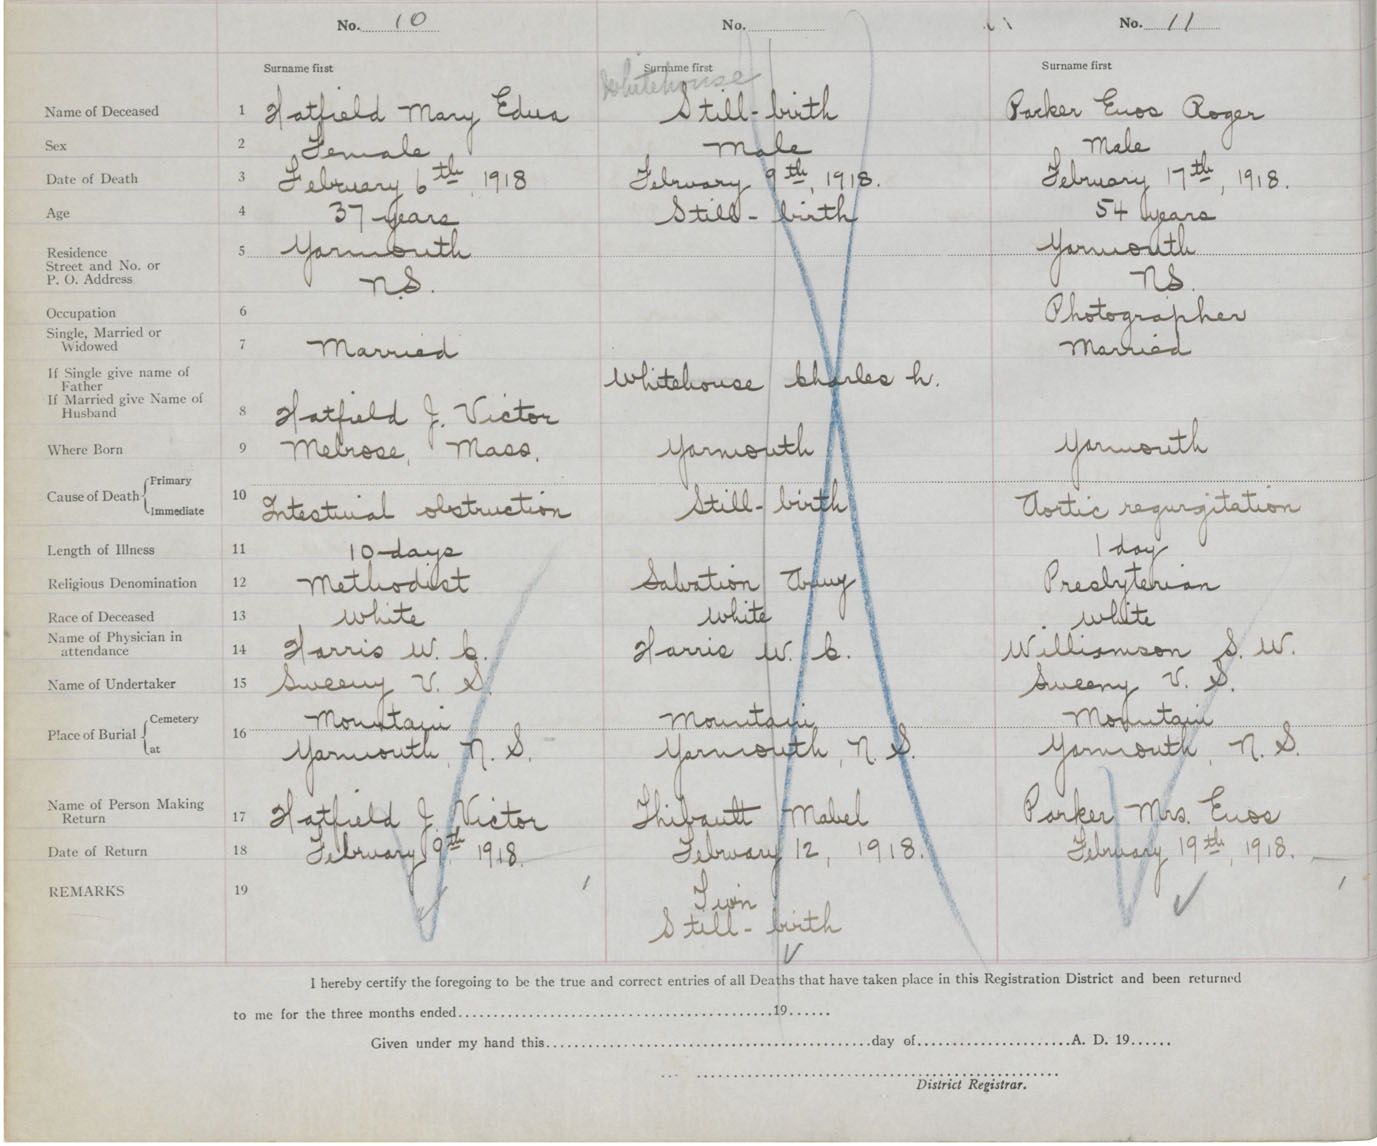 No. 10 No. No. 11
Surname first Surname first Surname first
Whitehouse
Name of Deceased 1 Hatfield Mary Edna Still-birth Parker Enos Roger
Sex 2 Female Male Male
Date of Death 3 February 6th, 1918 February 9th, 1918. February 17th, 1918.
Age 4 37 years Still-birth 54 years
Residence 5 Yarmouth Yarmouth
Street and No. or
P. O. Address N.S. N.S.
Occupation 6 Photographer
Single, Married or
Widowed 7 Married Married
If Single give name of
Father Whitehouse Charles H.
If Married give Name of
Husband 8 Hatfield J. Victor
Where Born 9 Melrose, Mass. Yarmouth Yarmouth
Cause of Death Primary
Immediate 10 Intestinal obstruction Still-birth Aortic regurgitation
Length of Illness 11 10 days 1 day
Religious Denomination 12 Methodist Salvation Army Presbyterian
Race of Deceased 13 White White White
Name of Physician in
attendance 14 Harris W. C. Harris W. C. Williamson S. W.
Name of Undertaker 15 Sweeny V. S. Sweeny V. S.
Place of Burial Cemetery 16 Mountain Mountain Mountain
at Yarmouth, N. S. Yarmouth, N. S. Yarmouth, N. S.
Name of Person Making
Return 17 Hatfield J. Victor Thibault Mabel Parker Mrs. Enos
Date of Return 18 February 9th 1918. February 12, 1918. February 19th, 1918.
REMARKS 19 Twin
Still-birth
I hereby certify the foregoing to be the true and correct entries of all Deaths that have taken place in this Registration District and been returned
to me for the three months ended........................................19......
Given under my hand this..........................................day of....................A. D. 19......
District Registrar.